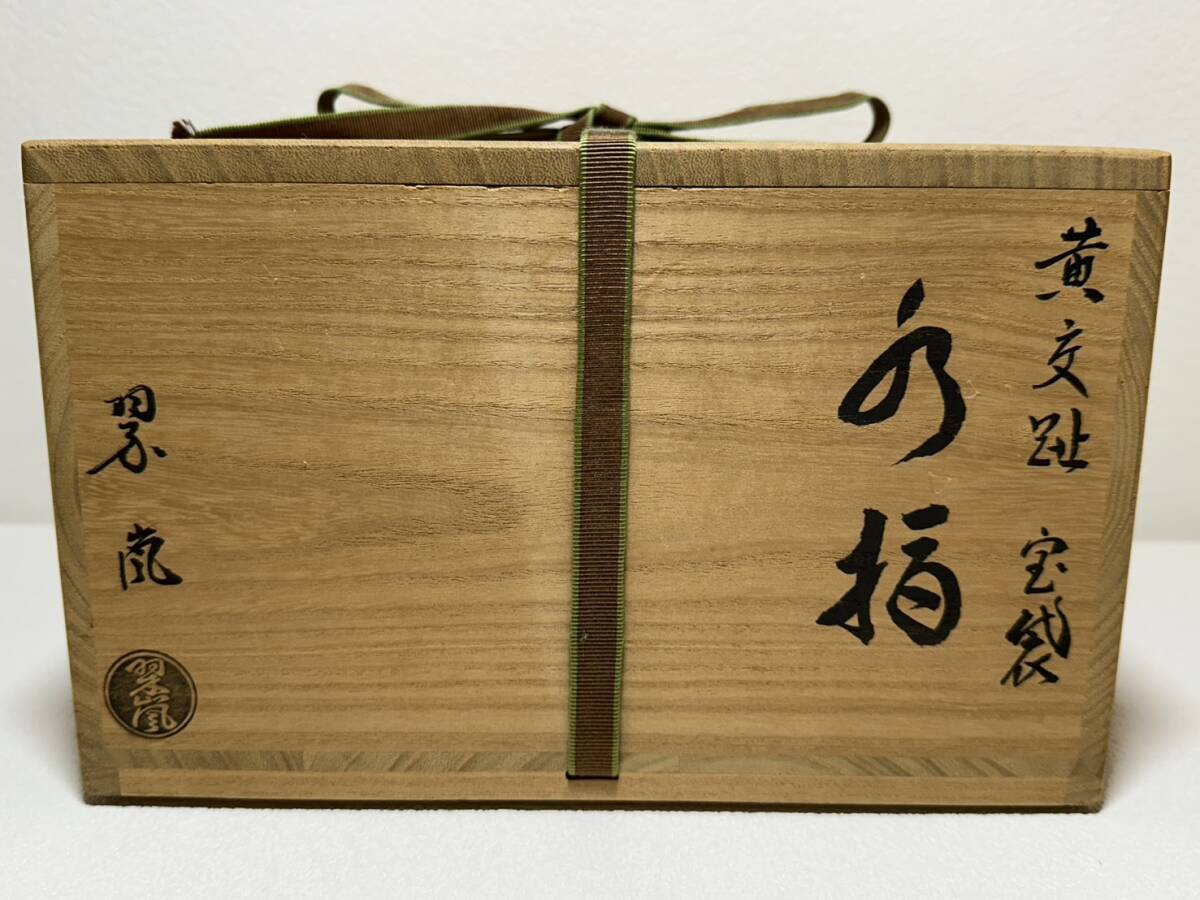 黄交趾 宝袋
水指
翠嵐
翠嵐